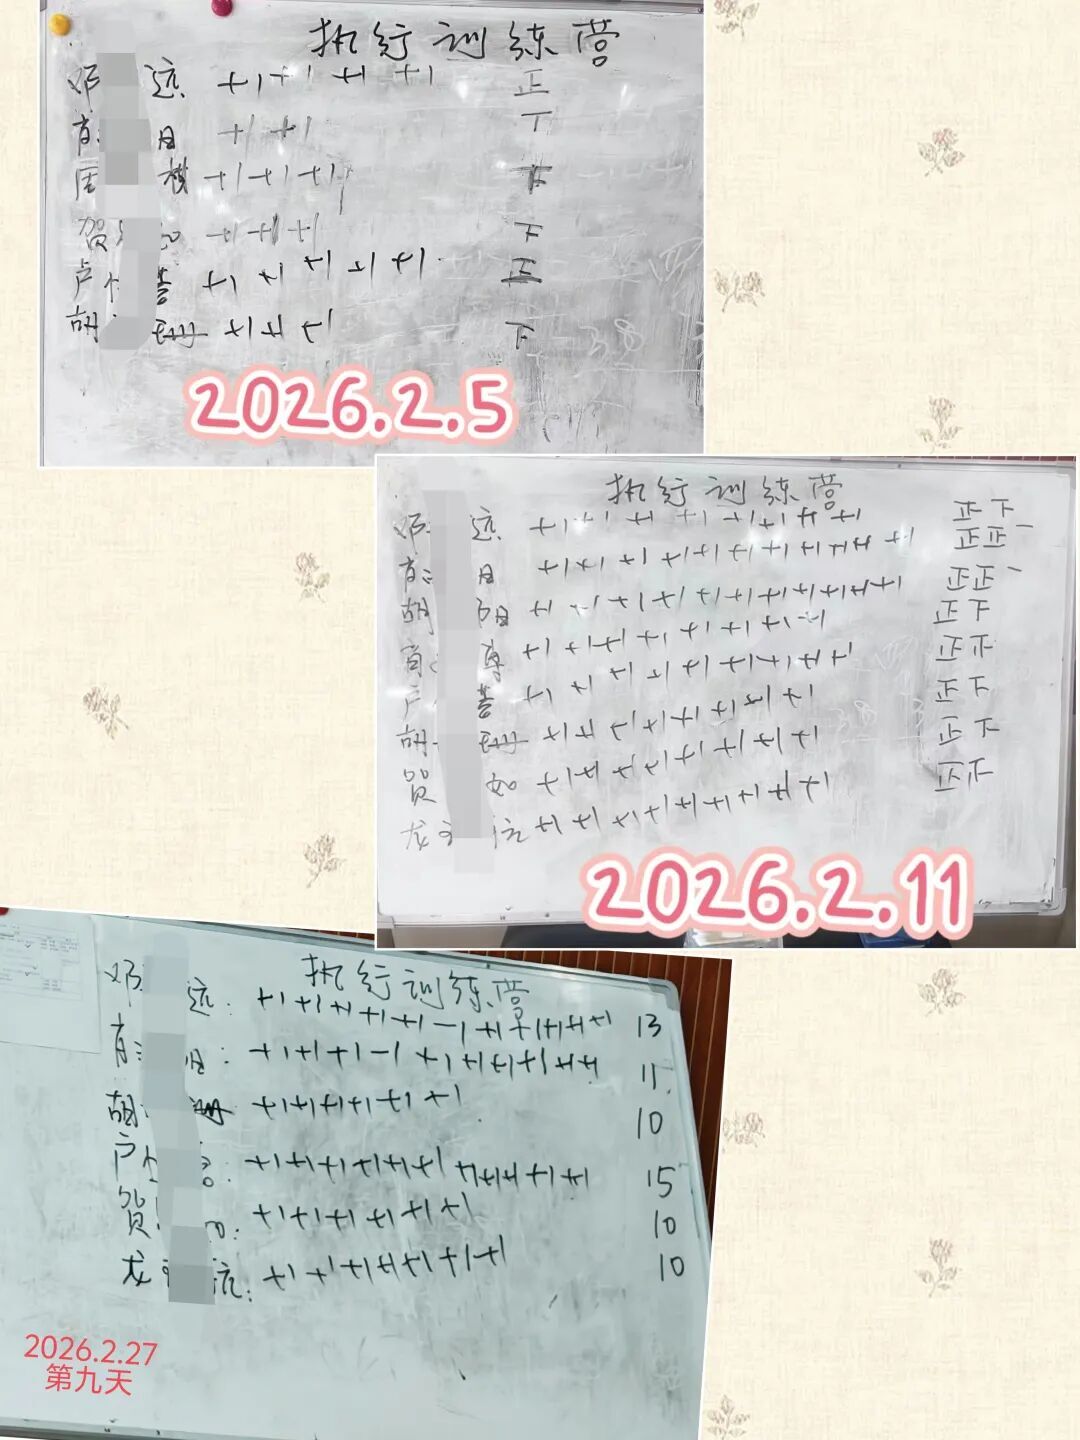 执行训练营
邓 远 +1 +1 +1 +1 正
肖 日 +1 +1 丅
周 棋 +1 +1 +1 下
贺 如 +1 +1 +1 下
卢 善 +1 +1 +1 +1 +1 正
胡 珊 +1 +1 +1 下
2026.2.5
执行训练营
邓 远 +1 +1 +1 +1 +1 +1 +1 +1 正下
肖 日 +1 +1 +1 +1 +1 +1 +1 +1 +1 +1 +1 正正一
胡 阳 +1 +1 +1 +1 +1 +1 +1 +1 +1 +1 +1 正正一
肖 专 +1 +1 +1 +1 +1 +1 +1 +1 正下
卢 善 +1 +1 +1 +1 +1 +1 +1 +1 +1
胡 珊 +1 +1 +1 +1 +1 +1 +1 +1 正下
贺 如 +1 +1 +1 +1 +1 +1 +1 +1 正下
龙 沅 +1 +1 +1 +1 +1 +1 +1 +1 +1
2026.2.11
执行训练营
邓 远: +1 +1 +1 +1 +1 -1 +1 +1 +1 +1 +1 13
肖 日: +1 +1 +1 -1 +1 +1 +1 +1 +1 +1 11
胡 珊 +1 +1 +1 +1 +1 +1 10
卢 : +1 +1 +1 +1 +1 +1 +1 +1 +1 +1 +1 15
贺 : +1 +1 +1 +1 +1 +1 10
龙 沅: +1 +1 +1 +1 +1 +1 +1 10
2026.2.27
第九天